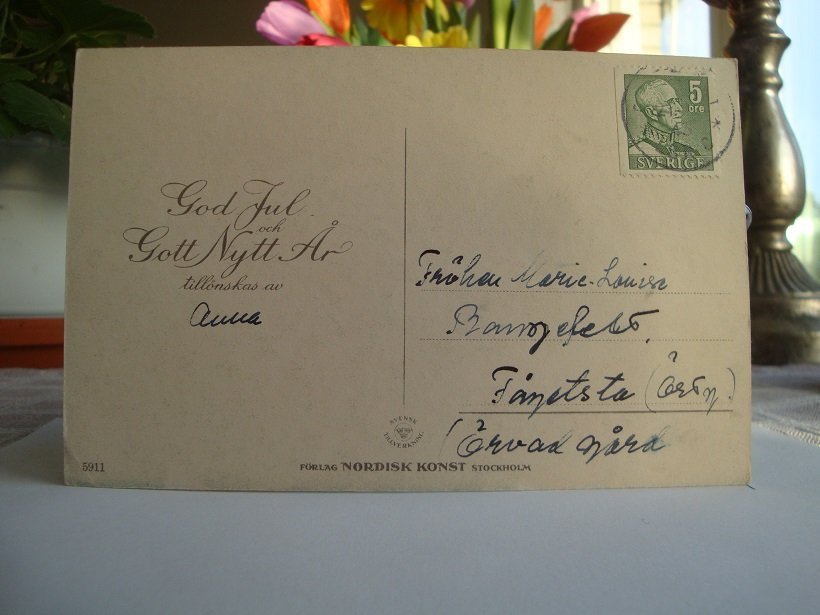 God Jul
och
Gott Nytt År
tillönskas av
Anna
5 öre
SVERIGE
Fröken Marie-Louise
Fågelsta
gård
SVENSK
TILLVERKNING
5911
FÖRLAG NORDISK KONST STOCKHOLM